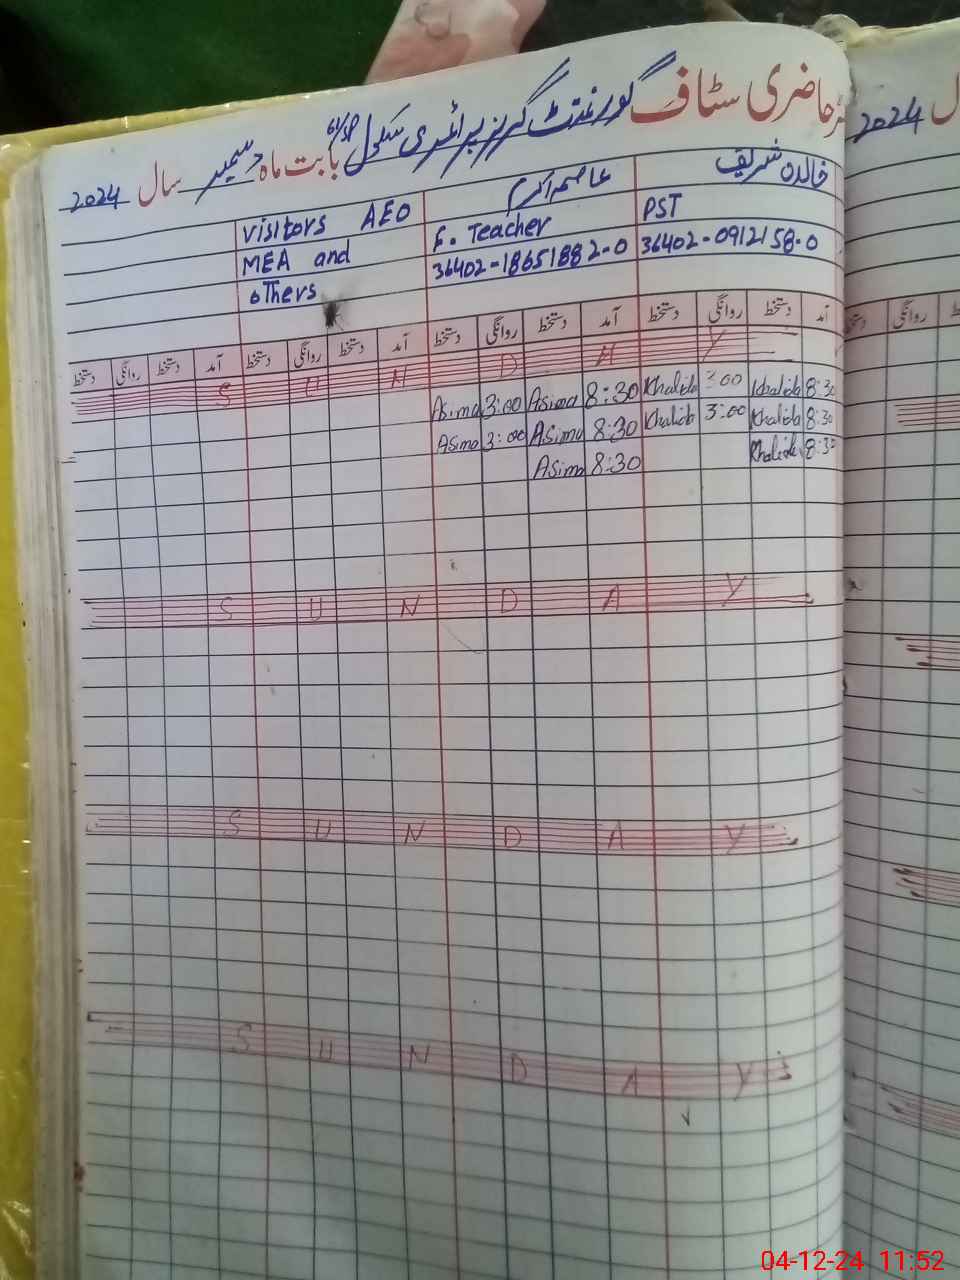 رجسٹر حاضری سٹاف گورنمنٹ گرلز پرائمری سکول 61/SP بابت ماہ دسمبر سال 2024
خالدہ شریف
PST
36402-0912158-0
عاصمہ اکرم
F. Teacher
36402-1865188 2-0
visitors AEO
MEA and
oThers
آمد دستخط روانگی دستخط آمد دستخط روانگی دستخط آمد دستخط روانگی دستخط آمد دستخط روانگی دستخط
S U N D A Y
8:30 Khalida 3:00 Khalida 8:30 Asima 3:00 Asima
8:30 Khalida 3:00 Khalida 8:30 Asima 3:00 Asima
8:30 Khalida 8:30 Asima
S U N D A Y
S U N D A Y
S U N D A Y
سال 2024
روانگی دستخط
04-12-24 11:52